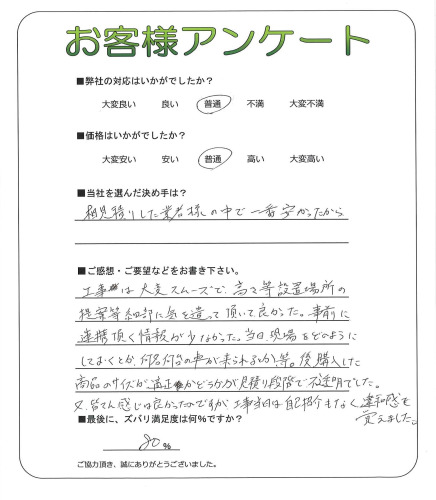 お客様アンケート
■弊社の対応はいかがでしたか？
大変良い　良い　普通　不満　大変不満
■価格はいかがでしたか？
大変安い　安い　普通　高い　大変高い
■当社を選んだ決め手は？
相見積りした業者様の中で一番安かったから
■ご感想・ご要望などをお書き下さい。
工事は大変スムーズで、高さ等設置場所の
提案等細部に気を遣って頂いて良かった。事前に
連携頂く情報が少なかった。当日、現場をどのように
しておくとか、何名何台の車が来られるとか、等。後購入した
商品のサイズが適正かどうかが見積り段階で不透明でした。
又、皆さん感じは良かったですが工事当日は自己紹介もなく違和感も
覚えました。
■最後に、ズバリ満足度は何％ですか？
80％
ご協力頂き、誠にありがとうございました。